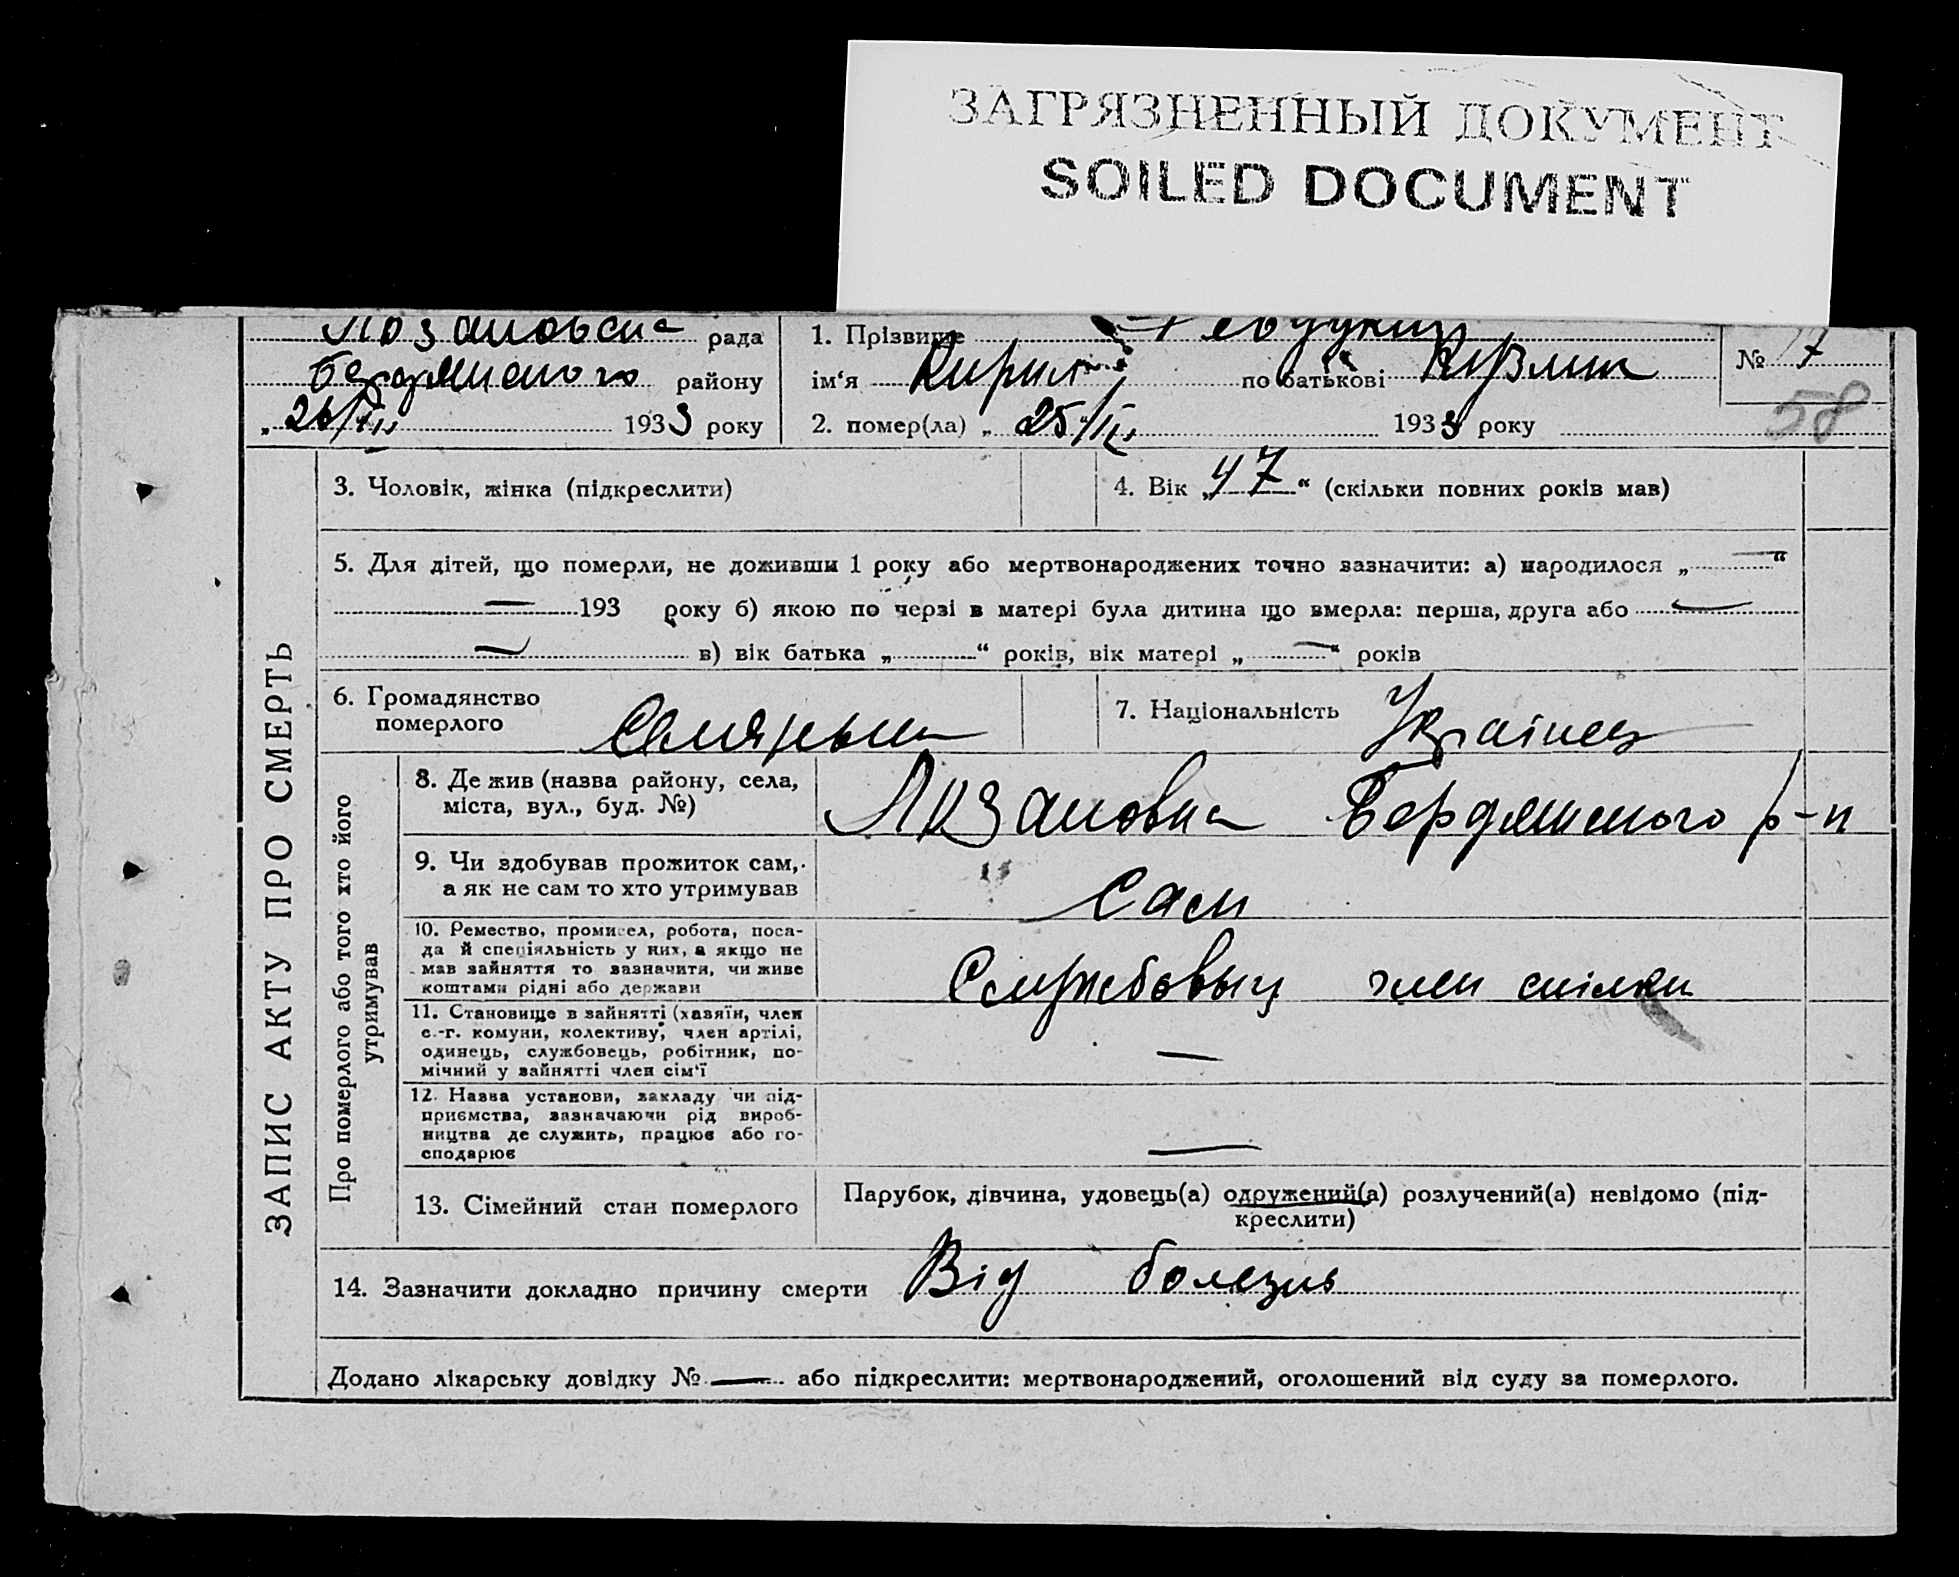 ЗАГРЯЗНЕННЫЙ ДОКУМЕНТ
SOILED DOCUMENT
рада
Бердянского району
„26/IV 1933 року
1. Прізвище
ім‘я Кирил по батькові Кузмич
2. помер(ла) „25/IV 1933 року
№ 7
58
ЗАПИС АКТУ ПРО СМЕРТЬ
3. Чоловік, жінка (підкреслити)
4. Вік „47“ (скільки повних років мав)
5. Для дітей, що померли, не доживши 1 року або мертвонароджених точно зазначити: а) народилося „—“
— 193 року б) якою по черзі в матері була дитина що вмерла: перша, друга або —
— в) вік батька „ “ років, вік матері „—“ років
6. Громадянство
померлого
7. Національність Українец
Про померлого або того хто його
утримував
8. Де жив (назва району, села,
міста, вул., буд. №)
Бердянского р-н
9. Чи здобував прожиток сам,
а як не сам то хто утримував
Сам
10. Ремество, промисел, робота, поса-
да й спеціяльність у них, а якщо не
мав зайняття то зазначити, чи живе
коштами рідні або держави
Службовец член спілки
11. Становище в зайнятті (хазяїн, член
с.-г. комуни, колективу, член артілі,
одинець, службовець, робітник, по-
мічний у зайнятті член сім‘ї
—
12. Назва установи, закладу чи під-
приємства, зазначаючи рід вироб-
ництва де служить, працює або го-
сподарює
—
13. Сімейний стан померлого
Парубок, дівчина, удовець(а) одружений(а) розлучений(а) невідомо (під-
креслити)
14. Зазначити докладно причину смерти Від болезнь
Додано лікарську довідку № — або підкреслити: мертвонароджений, оголошений від суду за померлого.